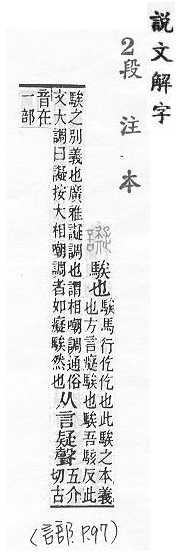 說文解字
2段注本
譺
騃也
騃馬行仡仡也此騃之本義
也方言癡騃也騃吾駭反此
騃之別義也廣雅譺調也謂相嘲調通俗
文大調曰譺按大相嘲調者如癡騃然也
从言疑聲
五介
切古
音在
一部
(言部 P.97)